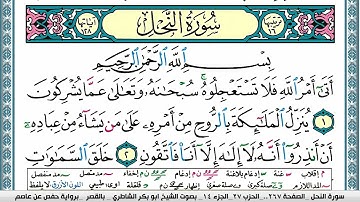 ترتيبها ١٦ سُورَةُ النَّحْلِ آياتها ١٢٨
بِسْمِ اللَّهِ الرَّحْمَٰنِ الرَّحِيمِ
أَتَىٰ أَمْرُ اللَّهِ فَلَا تَسْتَعْجِلُوهُ سُبْحَانَهُ وَتَعَالَىٰ عَمَّا يُشْرِكُونَ
١ يُنَزِّلُ الْمَلَائِكَةَ بِالرُّوحِ مِنْ أَمْرِهِ عَلَىٰ مَن يَشَاءُ مِنْ عِبَادِهِ
أَنْ أَنذِرُوا أَنَّهُ لَا إِلَٰهَ إِلَّا أَنَا فَاتَّقُونِ ٢ خَلَقَ السَّمَاوَاتِ
سورة النحل - الصفحة ٢٦٧ - الحزب ٢٧ الجزء ١٤ - بصوت الشيخ ابو بكر الشاطري - بالقمر - برواية حفص عن عاصم